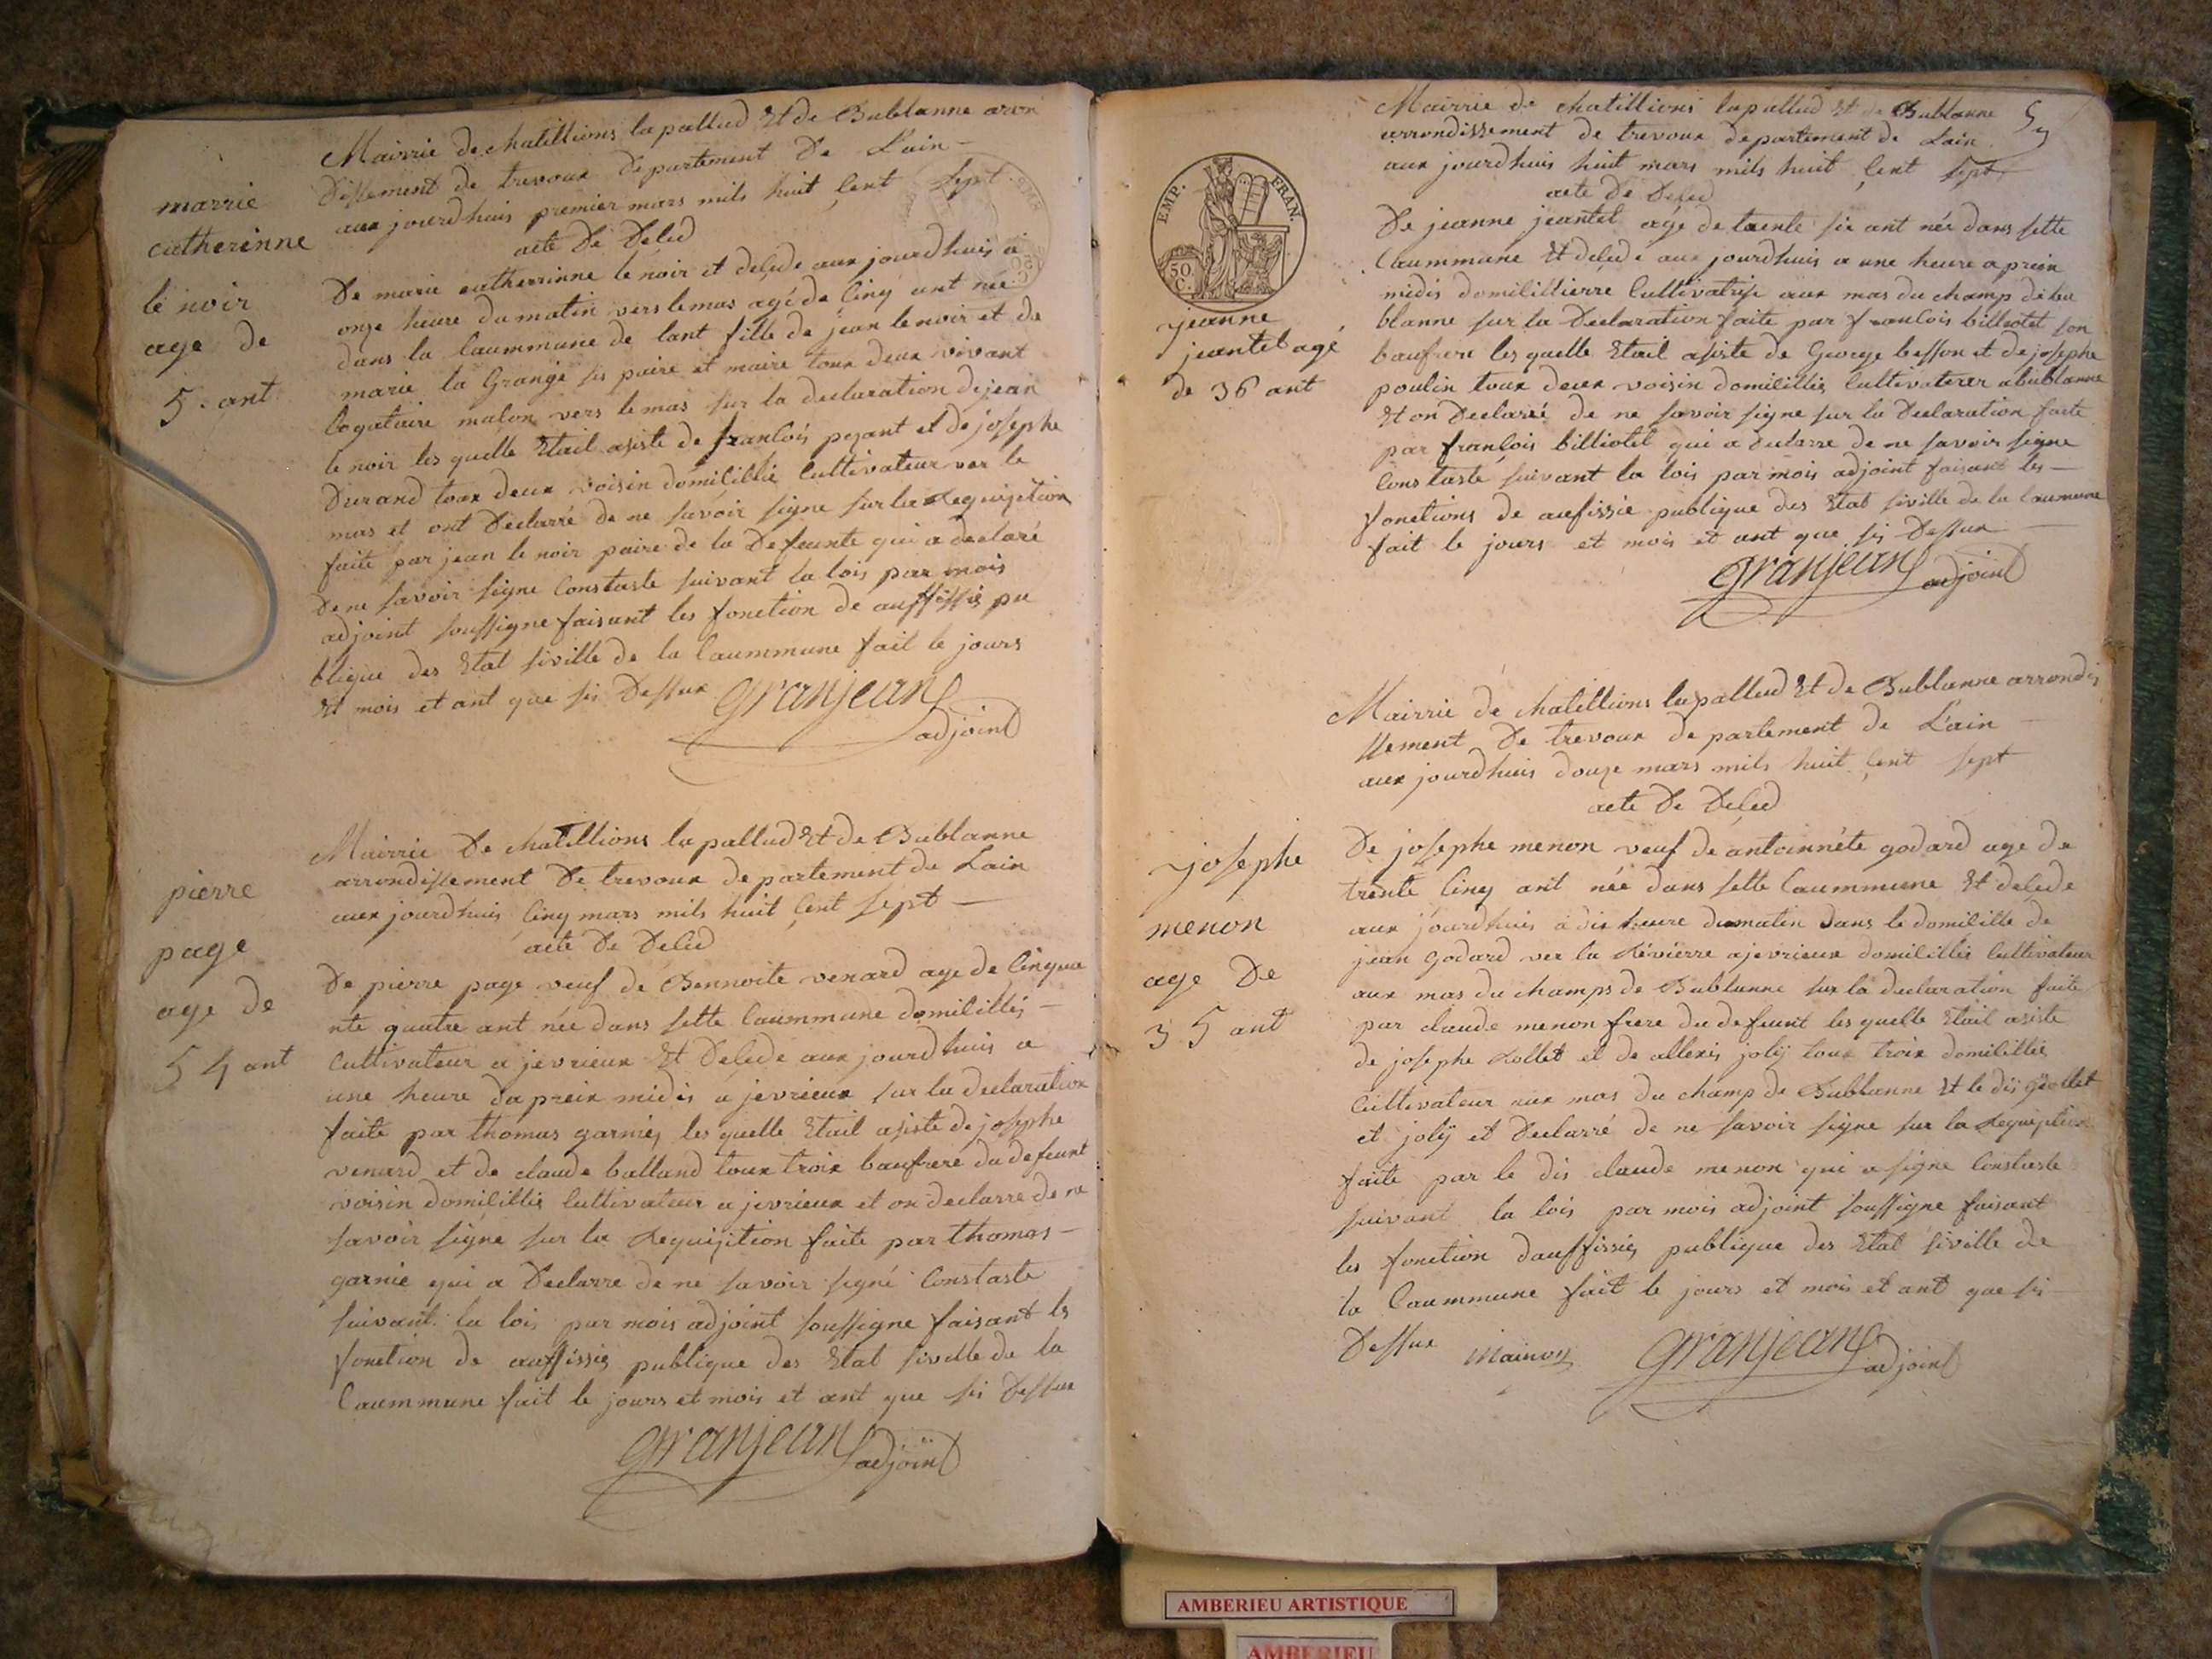 Mairrie de chatillions lapallud Et de Bublanne aron
dissement de trevoux departement De Lain
aux jourdhuis premier mars mils huit Cent sept
acte De Deled
marrie
catherinne
le noir
age de
5. ant
De marie catherrinne le noir et delede aux jourdhuis a
onze heure du matin vers lemas agé de Cinq ant née
dans la Caummune de lant fille de jean lenoir et de
marie la Grange ses paire et maire toux deux vivant
logataire malon vers lemas sur la declaration de jean
le noir les quelle Etait asiste de francois pezant et de josephe
Durand toux deux voisin domicillie Cultivateur ver le
mas et ont Declarré de ne savoir signe sur la Requizition
faite par jean le noir paire de la Defeunte qui a declaré
De ne savoir signe Constaste suivant la lois par mois
adjoint soussigne faisant les fonction de auffissie pu
blique des Etat siville de la Caummune fait le jours
Et mois et ant que sis Dessux
granjean
adjoint
Mairrie De chatillions lapallud Et de Bublanne
arrondissement De trevoux departement de Lain
aux jourdhuis Cinq mars mils huit Cent sept
acte De Deled
pierre
page
age de
54 ant
De pierre page veuf de Bennoite venard age de Cinqua
nte quatre ant née dans sette Caummune domicilliés
Cultivateur a jevrieux Et Delede aux jourdhuis a
une heure daprein midis a jevrieux sur la declaration
faite par thomas garnies les quelle Etait asiste de josephe
venard et de claude balland toux troix baufrere du defeunt
voisin domicillie Cultivateur a jevrieux et on declarre de ne
savoir signe sur la Requizition faite par thomas
garnie qui a Declarre de ne savoir signé Constaste
suivant la lois par mois adjoint soussigne faisant les
fonction de auffissie publique des Etat siville de la
Caummune fait le jours et mois et ant que sis Dessux
granjean
adjoint
Mairrie de chatillions lapallud Et de Bublanne
arrondissement de trevoux departement de Lain
aux jourdhuis huit mars mils huit Cent sept
acte De Deled
EMP. FRAN.
50 C.
jeanne
jeantel agé
de 36 ant
De jeanne jeantel agé de trente six ant née dans sette
Caummune Et delede aux jourdhuis a une heure aprein
midis domicillierre Cultivatrise aux mas du champ de bu
blanne sur la Declaration faite par francois billiotet son
baufrere les quelle Etait asiste de George besson et de josephe
poulin toux deux voisin domicillies Cultivaterer a bublanne
Et on Declarré de ne savoir signe sur la Declaration faite
par francois billiotel qui a declarre de ne savoir signe
Constaste suivant la lois par mois adjoint faisant les
fonctions de aufissie publique des Etat siville de la Caumune
fait le jours et mois et ant que sis Dessux
granjean
adjoint
Mairrie de chatillions lapallud Et de Bublanne arrondis
ssement De trevoux departement de L'ain
aux jourdhuis douze mars mils huit Cent sept
acte De Deled
josephe
menon
age De
35 ant
De josephe menon veuf de antoinnéte godard age de
trente Cinq ant née dans sette Caummune Et delede
aux jourdhuis a dix heure dumatin dans le domicille de
jean godard ver la Révierre a jevrieux domicillie Cultivateur
aux mas du champs de Bublanne sur la declaration faite
par claude menon frere du defeunt les quelle Etait asiste
de josephe Rollet et de allexis joly toux troix domicillie
Cultivateur aux mas du champ de Bublanne Et le dis
et joly et Declarré de ne savoir signe sur la Requisition
faite par le dis claude menon qui a signe Constaste
suivant la lois par mois adjoint soussigne faisant
les fonction dauffissies publique des Etat siville de
la Caummune fait le jours et mois et ant que sis
Dessux
granjean
adjoint
AMBERIEU ARTISTIQUE
AMBERIEU